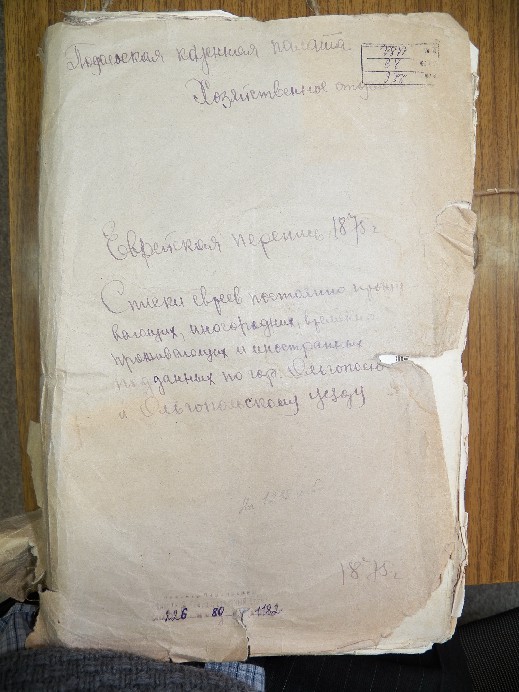 Подольская казенная палата
Хозяйственное отдел
Еврейская перепись 1875 г
Списки евреев постоянно прожи
вающих, иногородних, временно
проживающих и иностранных
подданных по гор. Ольгополю
и Ольгопольскому уезду
1875 г
226 80 1182